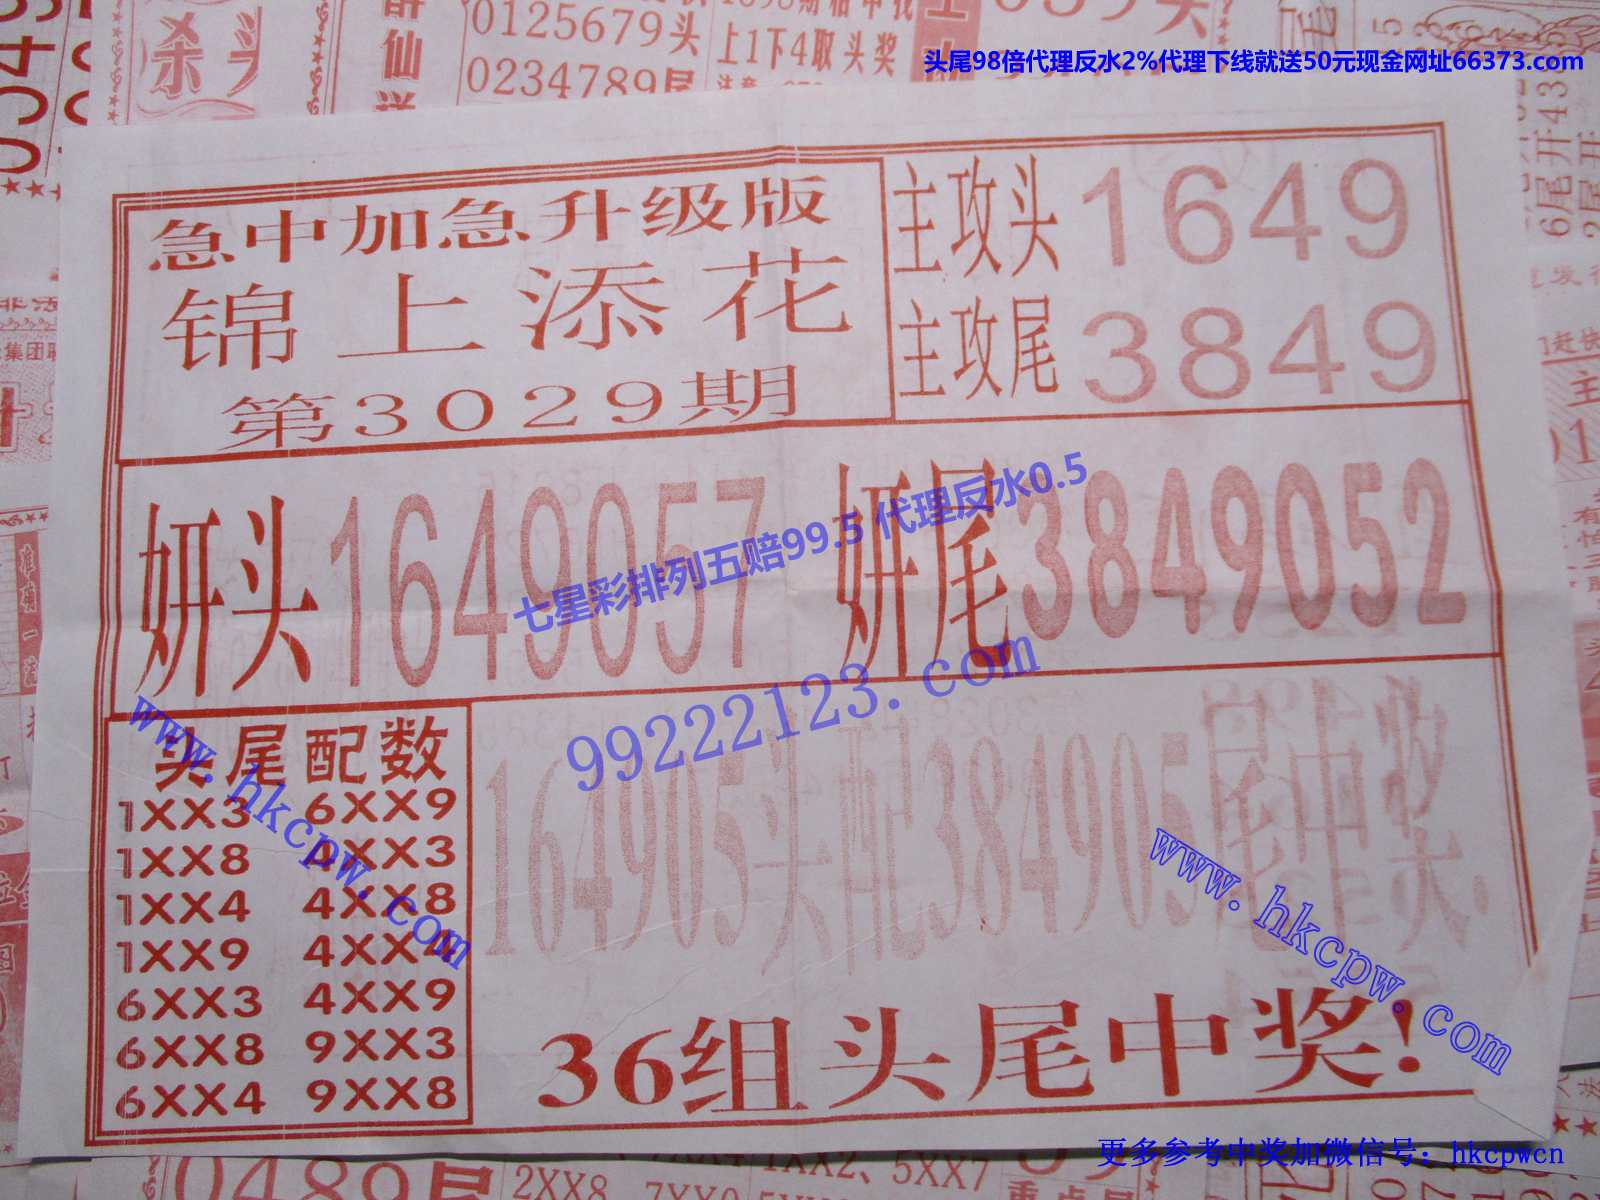 0125679头
0234789尾
上1下4取头奖
杀头
仙
头尾98倍代理反水2%代理下线就送50元现金网址66373.com
急中加急升级版
锦上添花
第3029期
主攻头1649
主攻尾3849
妍头1649057
妍尾3849052
七星彩排列五赔99.5 代理反水0.5
99222123.com
头尾配数
1XX3 6XX9
1XX8 4XX3
1XX4 4XX8
1XX9 4XX4
6XX3 4XX9
6XX8 9XX3
6XX4 9XX8
www.hkcpw.com
164905头配384905尾中奖
www.hkcpw.com
36组头尾中奖!
更多参考中奖加微信号：hkcpwcn
0489尾
2XX8
1XX2、5XX7